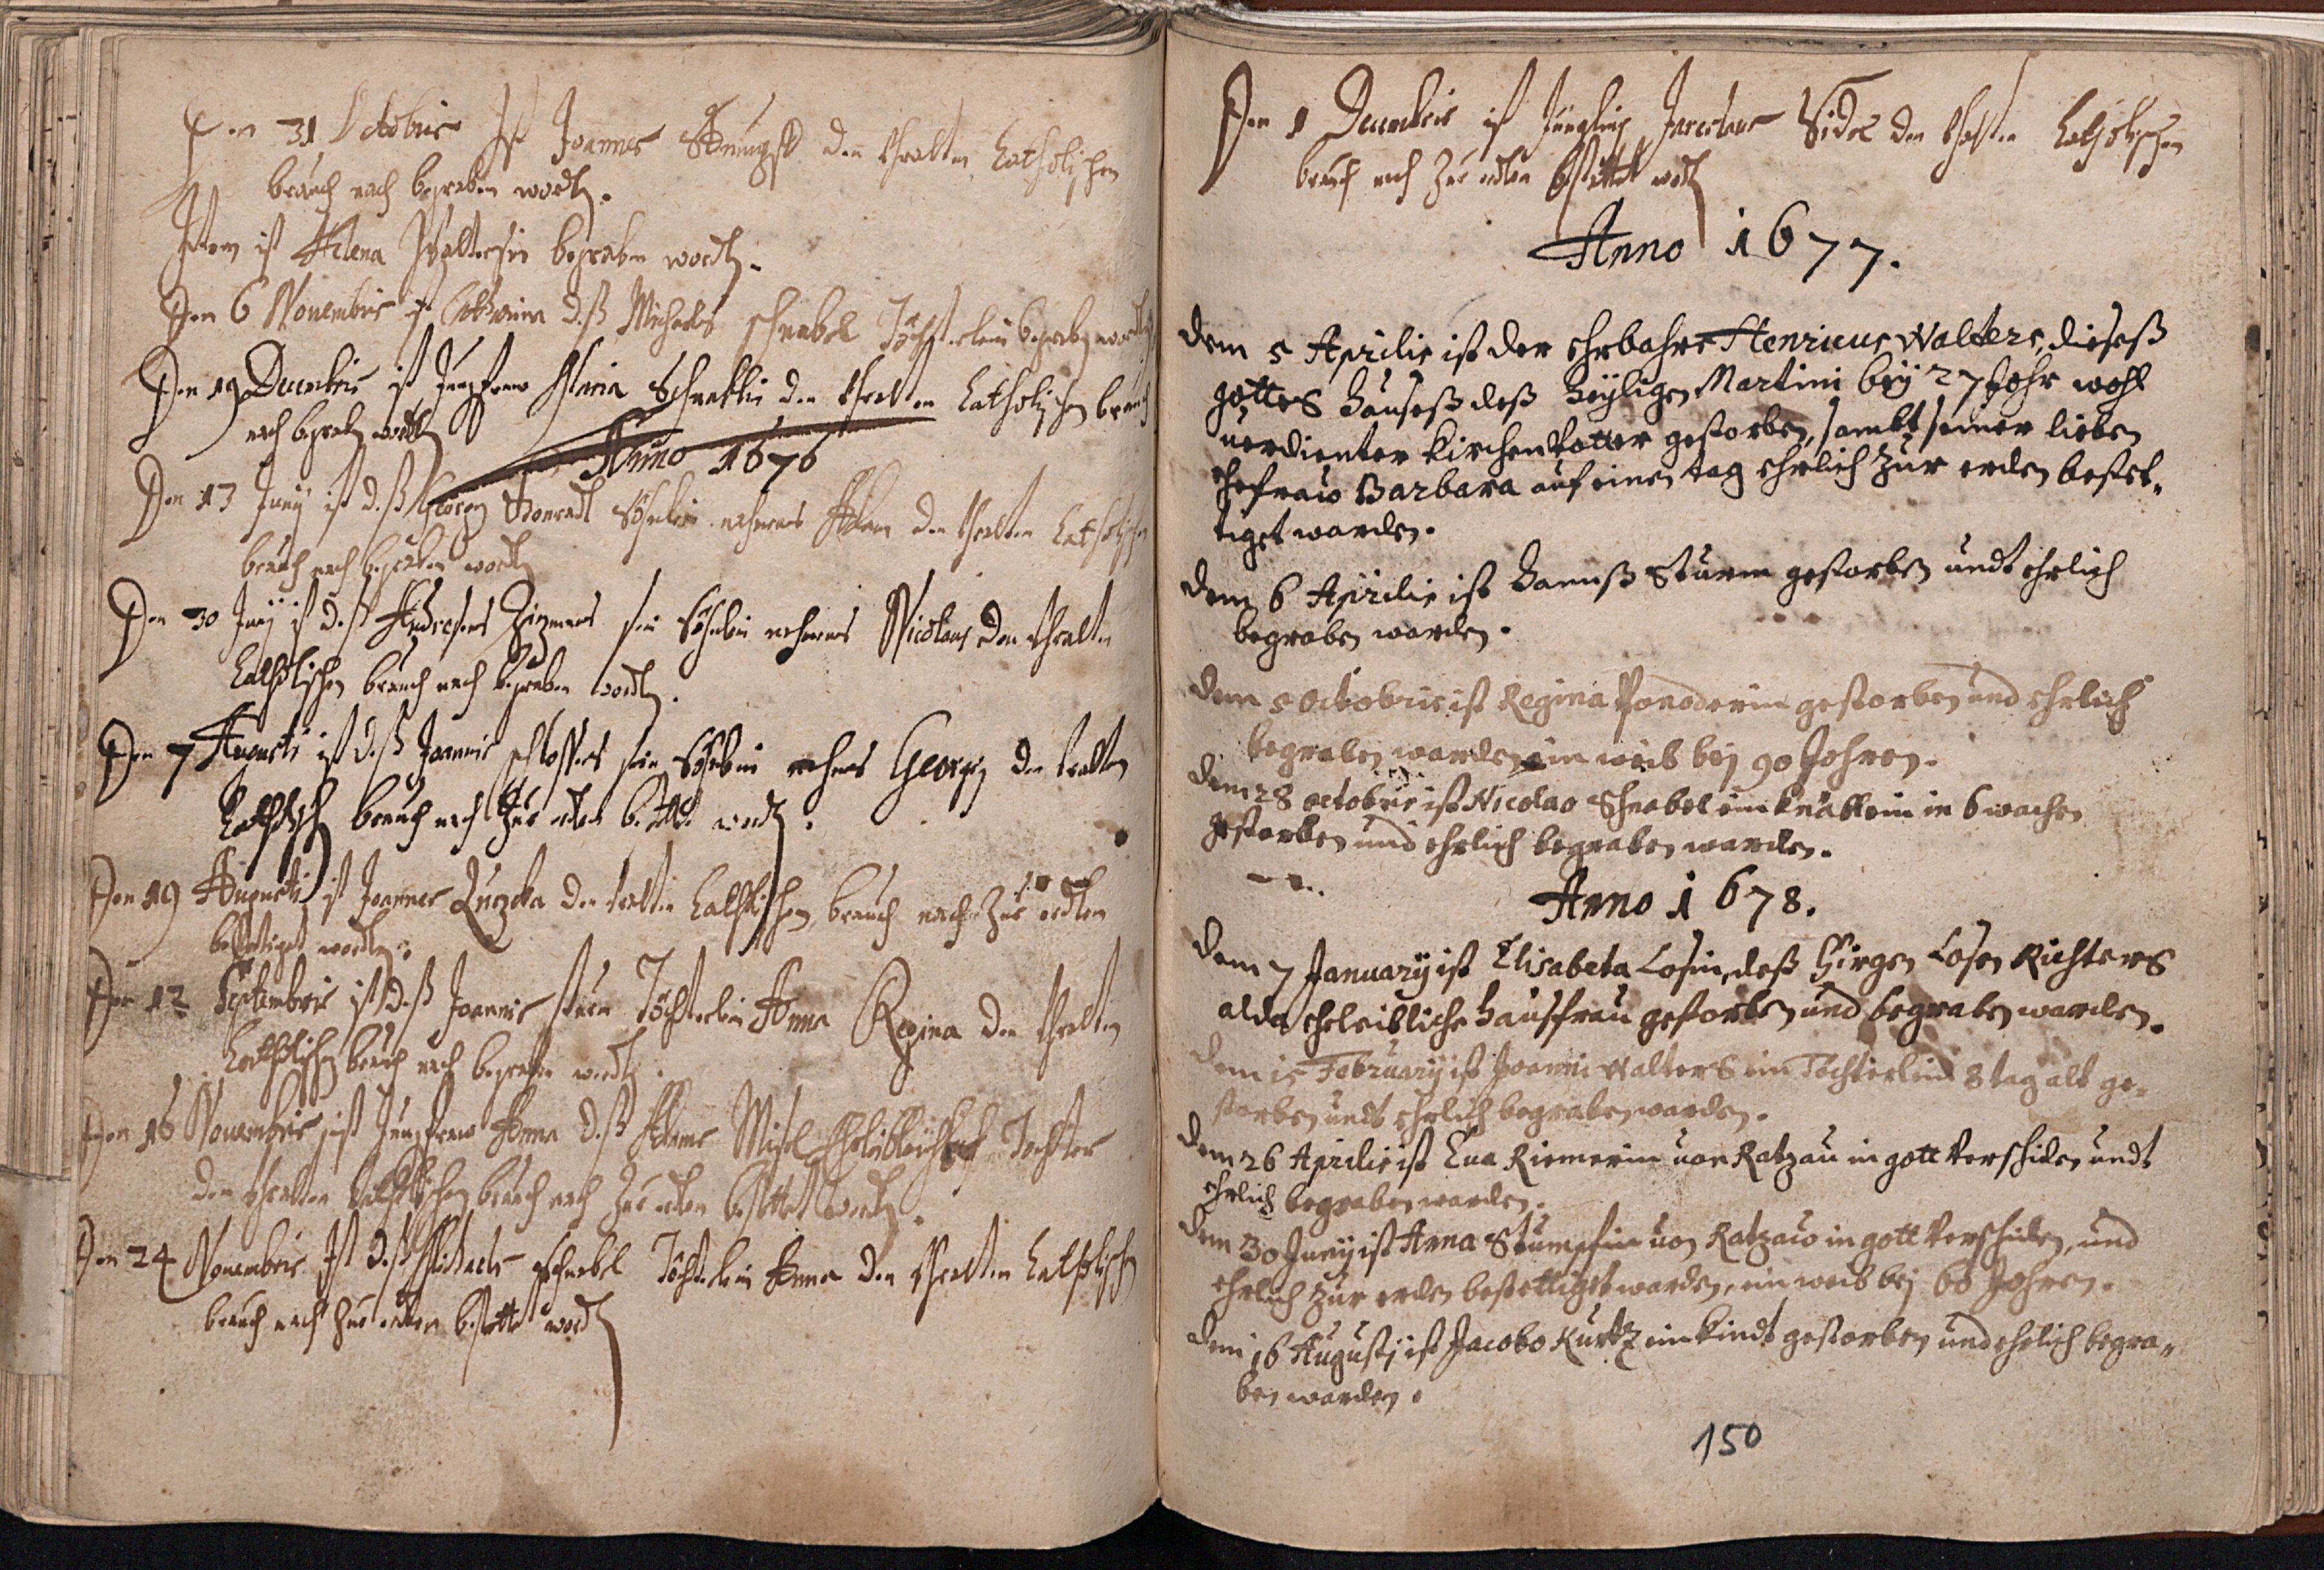 Den 31 Octobris Ist Joannes den vhralten Catholischen
brauch nach begraben wordn.
Item ist Helena Walterin begraben wordn.
Den 6 Nouembris ist Catharina deß Michaelis schnabel Töchterlein begraben wordn
Den 19 Decembris ist Jungfraw Maria den vhralten Catholischen brauch
nach begraben wordn
Anno 1676
Den 13 Juny ist deß Georg Söhnlein nahmens Adam den vhralten Catholischen
brauch nach begraben wordn
Den 30 Juny ist deß sein Söhnlein nahmens Nicolaus den vhralten
Catholischen brauch nach begraben wordn.
Den 7 Augusti ist deß Joannis schlossers sein Söhnlein nahmens Georg den vralten
Catholisch brauch nach zur erden bestettet wordn.
Den 19 Augusti ist Joannes den vralten Catholischen brauch nach zur erdten
bestetiget wordn.
Den 12 Septembris ist deß Joannis sturm Töchterlein Anna Regina den vhralten
Catholischen brauch nach begraben wordn.
Den 16 Nouembris ist Jungfraw Anna deß Adams Misel Tochter
den vhralten Catholischen brauch nach zur erden bestettet wordn.
Den 24 Nouembris Ist deß Michaels schnabel Töchterlein Anna den vhralten Catholischen
brauch nach zur erden bestettet wordn
Den 1 Decembris ist Jüngling den vhralten Catholischen
brauch nach zur erden bestettet wordn
Anno 1677.
dem 5 Aprilis ist der ehrbahre Henricus Walters, dieseß
gottes hauseß deß heyligen Martini bey 27 Johr wohl
uerdienter Kirchen Votter gestorben, sambt seiner lieben
ehefraw Barbara auf einen tag ehrlich zur erden bestet-
tiget warden.
dem 6 Aprilis ist Hannß Sturm gestorben undt ehrlich
begraben warden.
dem 5 octobris ist Regina gestorben und ehrlich
begraben warden, ein weib bey 90 Johren.
dem 28 octobris ist Nicolao Schnabel ein knäblein in 6 wachen
gestorben und ehrlich begraben warden.
Anno 1678.
dem 7 January ist Elisabeta Losin, deß Girgen Losen Richters
alda eheleibliche hausfrau gestorben und begraben warden.
dem 15 February ist Joanni Walters ein Töchterlein 8 tag alt ge-
storben undt ehrlich begraben warden.
dem 26 Aprilis ist Eua Riemerin uon Ratzau in gott verschiden undt
ehrlich begraben warden.
dem 30 Juny ist Anna Stumpfin uon Ratzaw in gott verschiden, und
ehrlich zur erden bestettiget warden, ein weib bey 60 Johren.
dem 16 Augusti ist Jacobo Kurtz ein kindt gestorben und ehrlich begra-
ben warden.
150